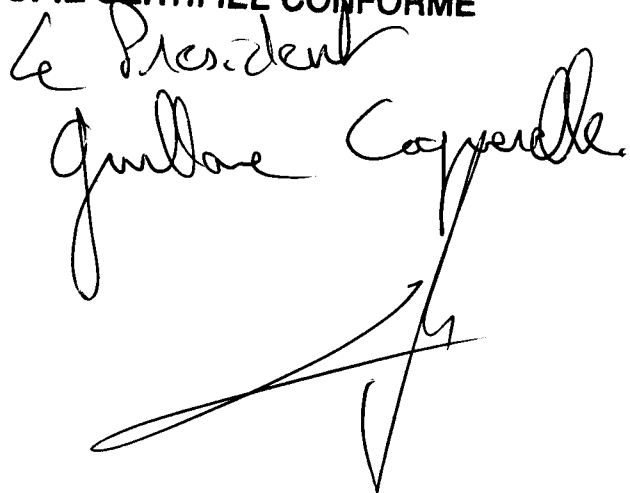 CERTIFIEE CONFORME
Le President
Guillaume Coquerelle